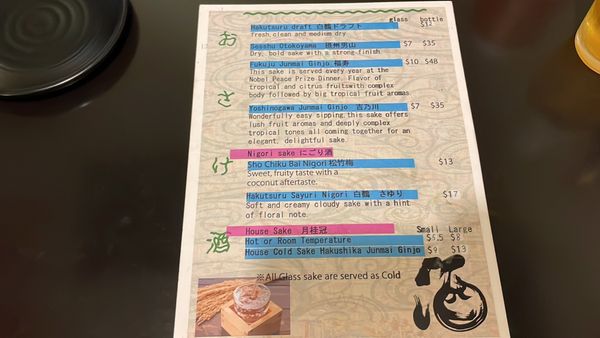 glass bottle
Hakutsuru draft 白鶴ドラフト $12
fresh clean and medium dry
お
Sesshu Otokoyama 摂州男山 $7 $35
Dry, bold sake with a strong finish
Fukuju Junmai Ginjo 福寿 $10 $48
This sake is served every year at the
Nobel Peace Prize Dinner. Flavor of
tropical and citrus fruitwith complex
body followed by big tropical fruit aromas
さ
Yoshinogawa Junmai Ginjo 吉乃川 $7 $35
Wonderfully easy sipping,this sake offers
lush fruit aromas and deeply complex
tropical tones all coming together for an
elegant, delightful sake.
Nigori sake にごり酒
け
Sho Chiku Bai Nigori 松竹梅 $13
Sweet, fruity taste with a
coconut aftertaste.
Hakutsuru Sayuri Nigori 白鶴 さゆり $17
Soft and creamy cloudy sake with a hint
of floral note.
House Sake 月桂冠 Small Large
酒
Hot or Room Temperature $5.5 $8
House Cold Sake Hakushika Junmai Ginjo $9 $13
※All Glass sake are served as Cold